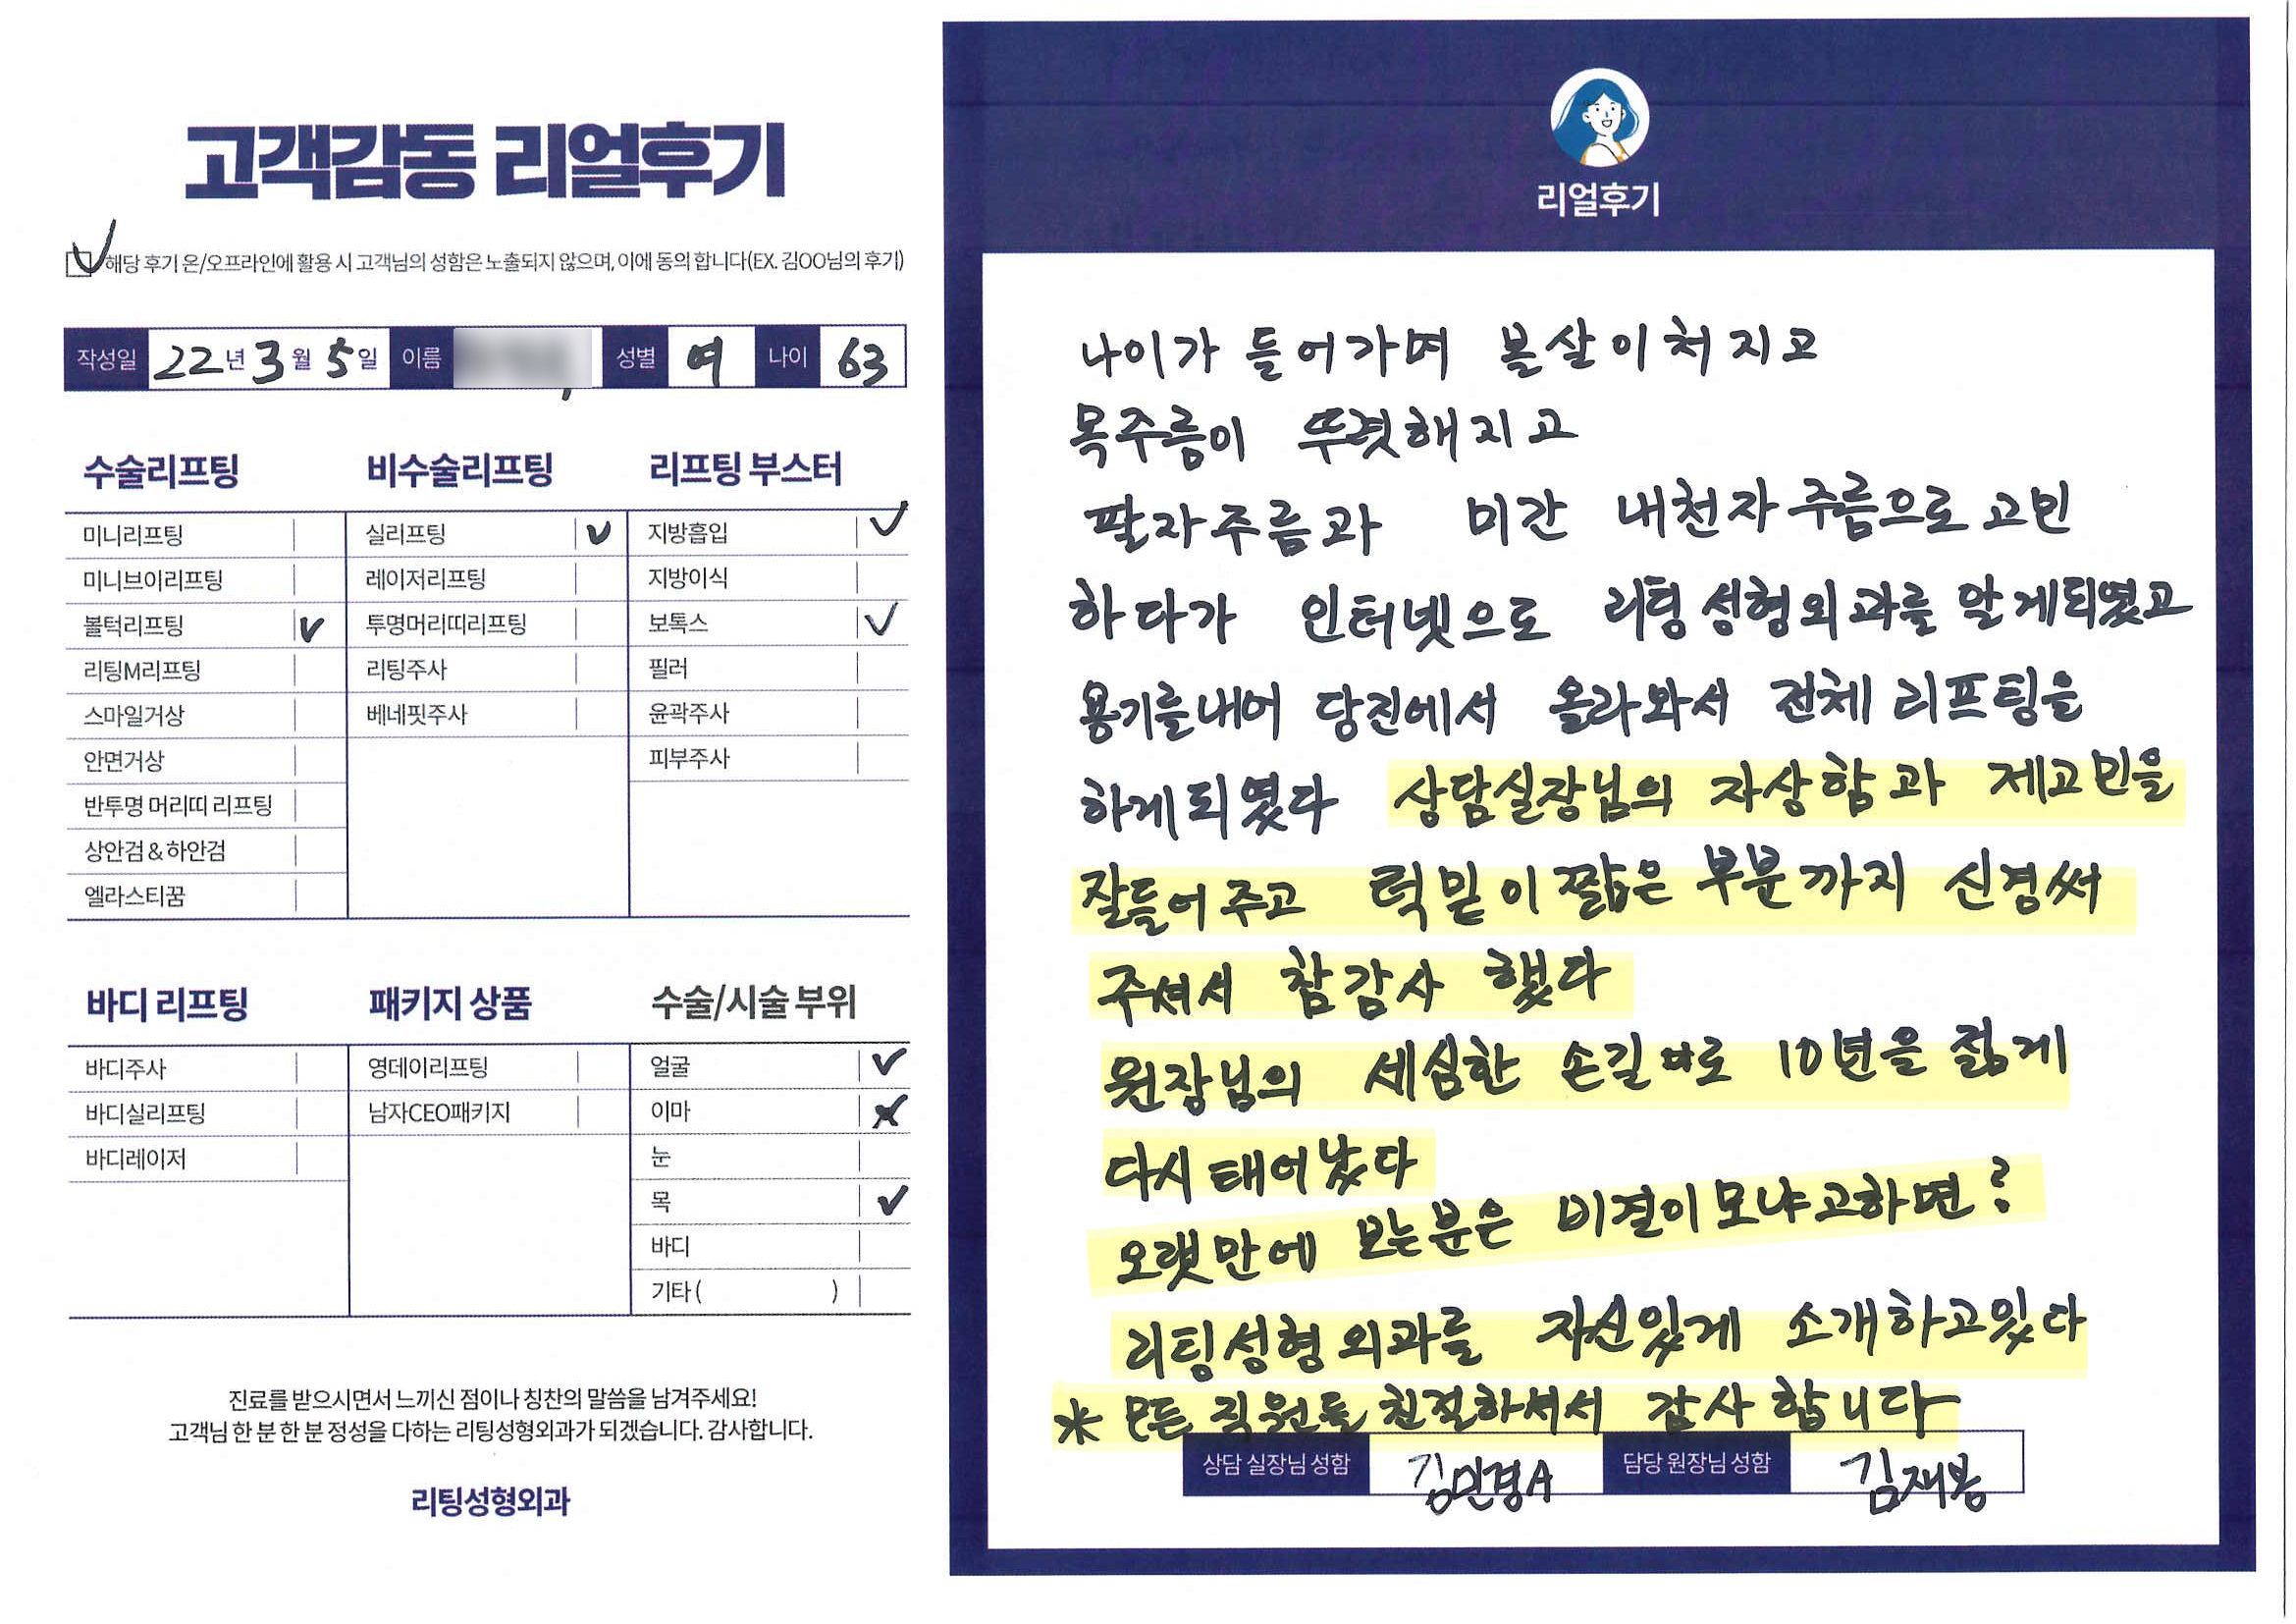 고객감동 리얼후기
해당 후기 온/오프라인에 활용 시 고객님의 성함은 노출되지 않으며, 이에 동의 합니다(EX. 김OO님의 후기)
작성일 22년 3월 5일 이름 성별 여 나이 63
수술리프팅
미니리프팅
미니브이리프팅
볼턱리프팅
리팅M리프팅
스마일거상
안면거상
반투명 머리띠 리프팅
상안검 & 하안검
엘라스티꿈
비수술리프팅
실리프팅
레이저리프팅
투명머리띠리프팅
리팅주사
베네핏주사
리프팅 부스터
지방흡입
지방이식
보톡스
필러
윤곽주사
피부주사
바디 리프팅
바디주사
바디실리프팅
바디레이저
패키지 상품
영데이리프팅
남자CEO패키지
수술/시술 부위
얼굴
이마
눈
목
바디
기타 ( )
진료를 받으시면서 느끼신 점이나 칭찬의 말씀을 남겨주세요!
고객님 한 분 한 분 정성을 다하는 리팅성형외과가 되겠습니다. 감사합니다.
리팅성형외과
리얼후기
나이가 들어가며 볼살이처지고
목주름이 뚜렷해지고
팔자주름과 미간 내천자주름으로 고민
하다가 인터넷으로 리팅성형외과를 알게되였고
용기를내어 당진에서 올라와서 전체 리프팅을
하게되였다 상담실장님의 자상함과 제고민을
잘들어주고 턱밑이짧은 부분까지 신경써
주셔서 참감사 했다
원장님의 세심한 손길로 10년을 젊게
다시태어났다
오랫만에 보는분은 비결이모냐고하면?
리팅성형외과를 자신있게 소개하고있다
* 모든 직원들 친절하셔서 감사합니다
상담 실장님 성함 김민경A 담당 원장님 성함 김재봉